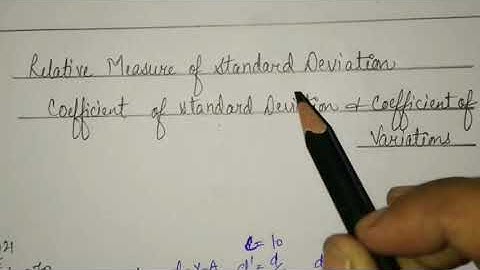 Relative Measure of Standard Deviation
Coefficient of standard Deviation & Coefficient of
Variations
C = 10
X-A d' = d